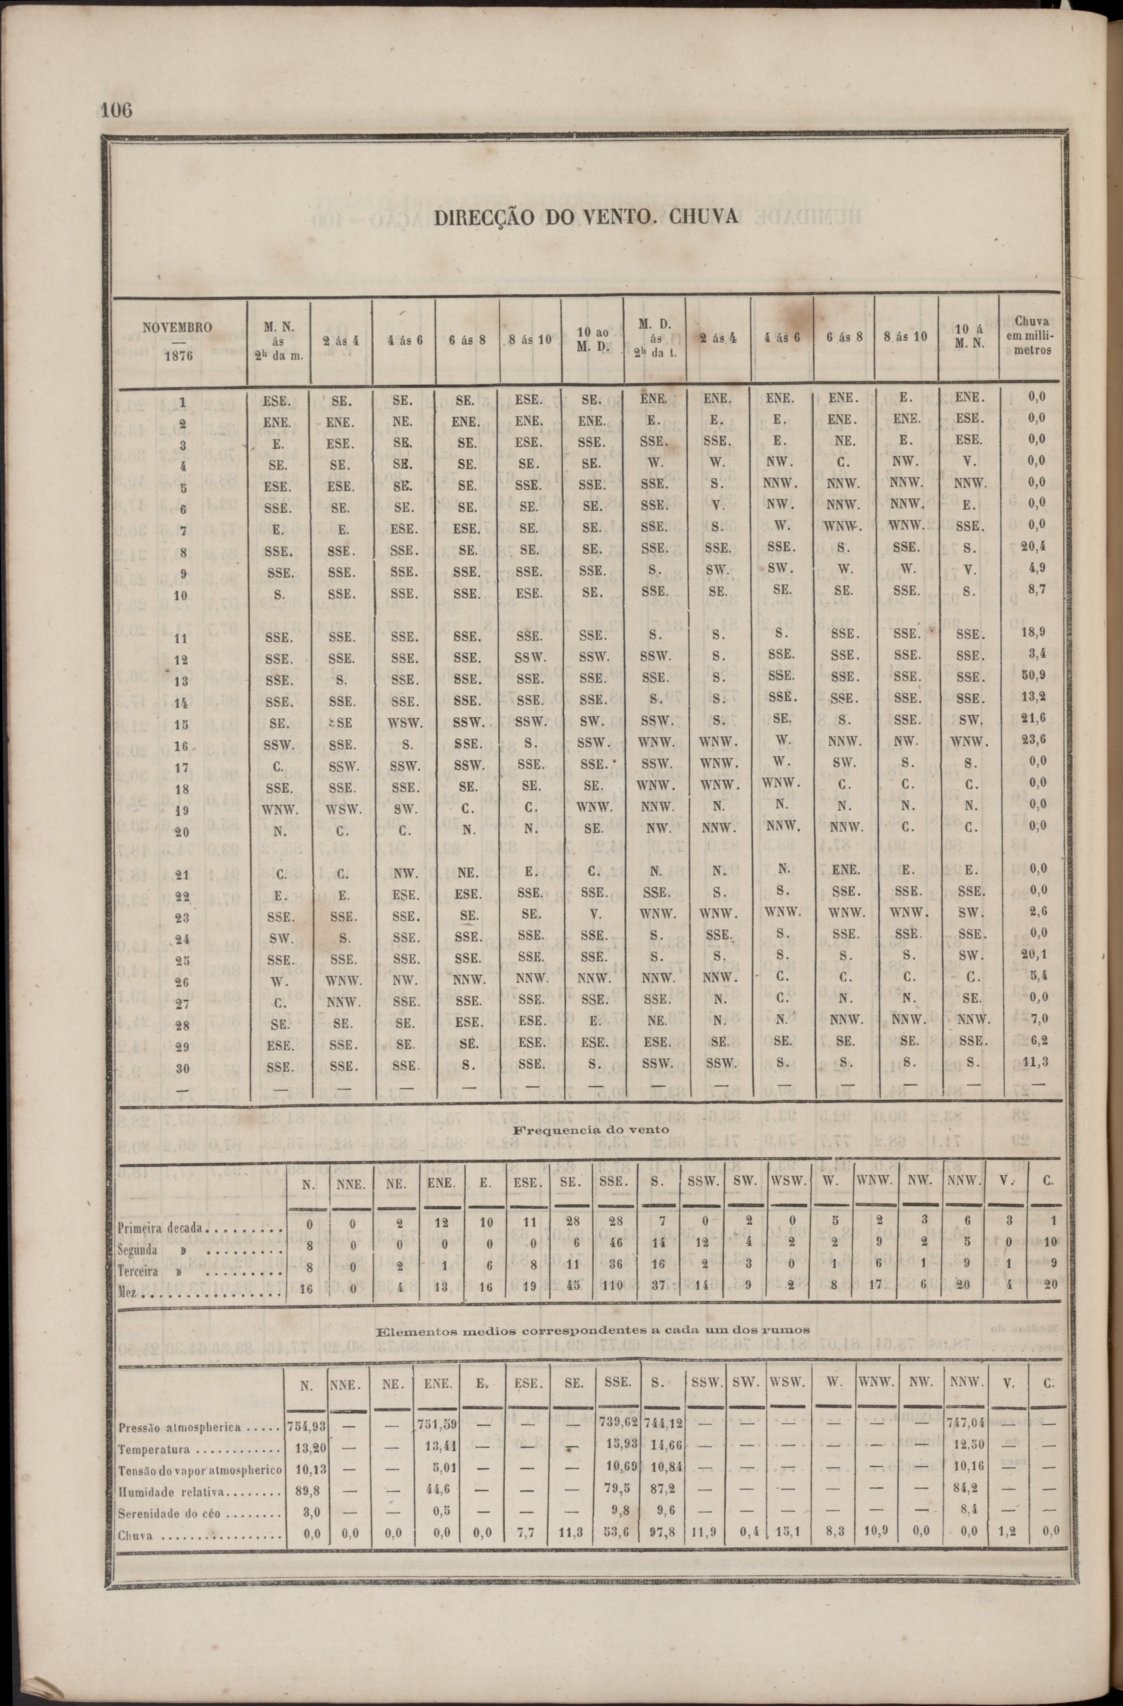 106
DIRECÇÃO DO VENTO. CHUVA
NOVEMBRO — 1876 | M. N. ás 2h da m. | 2 ás 4 | 4 ás 6 | 6 ás 8 | 8 ás 10 | 10 ao M. D. | M. D. ás 2h da t. | 2 ás 4 | 4 ás 6 | 6 ás 8 | 8 ás 10 | 10 á M. N. | Chuva em milli- metros
1 ESE. SE. SE. SE. ESE. SE. ENE. ENE. ENE. ENE. E. ENE. 0,0
2 ENE. ENE. NE. ENE. ENE. ENE. E. E. E. ENE. ENE. ESE. 0,0
3 E. ESE. SE. SE. ESE. SSE. SSE. SSE. E. NE. E. ESE. 0,0
4 SE. SE. SE. SE. SE. SE. W. W. NW. C. NW. V. 0,0
5 ESE. ESE. SE. SE. SSE. SSE. SSE. S. NNW. NNW. NNW. NNW. 0,0
6 SSE. SE. SE. SE. SE. SE. SSE. V. NW. NNW. NNW. E. 0,0
7 E. E. ESE. ESE. SE. SE. SSE. S. W. WNW. WNW. SSE. 0,0
8 SSE. SSE. SSE. SE. SE. SE. SSE. SSE. SSE. S. SSE. S. 20,4
9 SSE. SSE. SSE. SSE. SSE. SSE. S. SW. SW. W. W. V. 4,9
10 S. SSE. SSE. SSE. ESE. SE. SSE. SE. SE. SE. SSE. S. 8,7
11 SSE. SSE. SSE. SSE. SSE. SSE. S. S. S. SSE. SSE. SSE. 18,9
12 SSE. SSE. SSE. SSE. SSW. SSW. SSW. S. SSE. SSE. SSE. SSE. 3,4
13 SSE. S. SSE. SSE. SSE. SSE. SSE. S. SSE. SSE. SSE. SSE. 50,9
14 SSE. SSE. SSE. SSE. SSE. SSE. S. S. SSE. SSE. SSE. SSE. 13,2
15 SE. SE WSW. SSW. SSW. SW. SSW. S. SE. S. SSE. SW. 21,6
16 SSW. SSE. S. SSE. S. SSW. WNW. WNW. W. NNW. NW. WNW. 23,6
17 C. SSW. SSW. SSW. SSE. SSE. SSW. WNW. W. SW. S. S. 0,0
18 SSE. SSE. SSE. SE. SE. SE. WNW. WNW. WNW. C. C. C. 0,0
19 WNW. WSW. SW. C. C. WNW. NNW. N. N. N. N. N. 0,0
20 N. C. C. N. N. SE. NW. NNW. NNW. NNW. C. C. 0,0
21 C. C. NW. NE. E. C. N. N. N. ENE. E. E. 0,0
22 E. E. ESE. ESE. SSE. SSE. SSE. S. S. SSE. SSE. SSE. 0,0
23 SSE. SSE. SSE. SE. SE. V. WNW. WNW. WNW. WNW. WNW. SW. 2,6
24 SW. S. SSE. SSE. SSE. SSE. S. SSE. S. SSE. SSE. SSE. 0,0
25 SSE. SSE. SSE. SSE. SSE. SSE. S. S. S. S. S. SW. 20,1
26 W. WNW. NW. NNW. NNW. NNW. NNW. NNW. C. C. C. C. 5,4
27 C. NNW. SSE. SSE. SSE. SSE. SSE. N. C. N. N. SE. 0,0
28 SE. SE. SE. ESE. ESE. E. NE. N. N. NNW. NNW. NNW. 7,0
29 ESE. SSE. SE. SE. ESE. ESE. ESE. SE. SE. SE. SE. SSE. 6,2
30 SSE. SSE. SSE. S. SSE. S. SSW. SSW. S. S. S. S. 11,3
— — — — — — — — — — — — — —
Frequencia do vento
N. NNE. NE. ENE. E. ESE. SE. SSE. S. SSW. SW. WSW. W. WNW. NW. NNW. V. C.
Primeira decada......... 0 0 2 12 10 11 28 28 7 0 2 0 5 2 3 6 3 1
Segunda » ......... 8 0 0 0 0 0 6 46 14 12 4 2 2 9 2 5 0 10
Terceira » ......... 8 0 2 1 6 8 11 36 16 2 3 0 1 6 1 9 1 9
Mez................ 16 0 4 13 16 19 45 110 37 14 9 2 8 17 6 20 4 20
Elementos medios correspondentes a cada um dos rumos
N. NNE. NE. ENE. E. ESE. SE. SSE. S. SSW. SW. WSW. W. WNW. NW. NNW. V. C.
Pressão atmospherica ..... 754,93 — — 751,59 — — — 739,62 744,12 — — — — — — 747,04 — —
Temperatura ............ 13,20 — — 13,41 — — — 15,93 14,66 — — — — — — 12,50 — —
Tensão do vapor atmospherico 10,13 — — 5,01 — — — 10,69 10,84 — — — — — — 10,16 — —
Humidade relativa........ 89,8 — — 44,6 — — — 79,5 87,2 — — — — — — 84,2 — —
Serenidade do céo ........ 3,0 — — 0,5 — — — 9,8 9,6 — — — — — — 8,4 — —
Chuva ................ 0,0 0,0 0,0 0,0 0,0 7,7 11,3 53,6 97,8 11,9 0,4 15,1 8,3 10,9 0,0 0,0 1,2 0,0